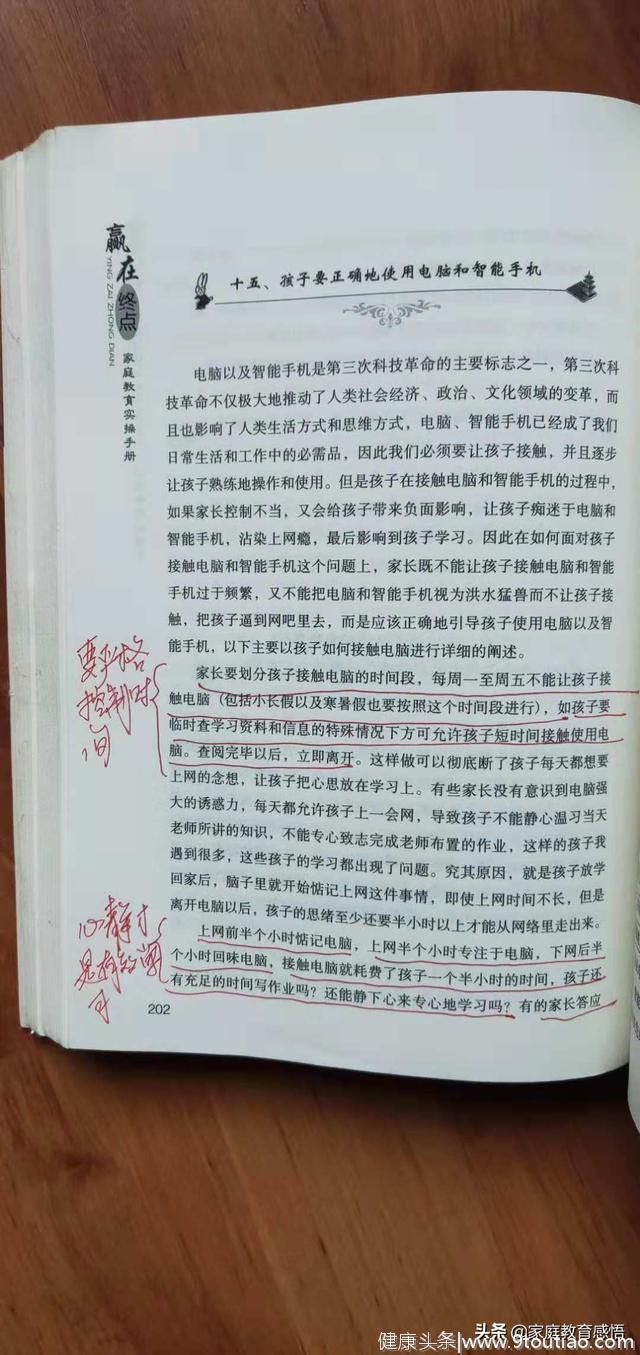 赢在终点
YING ZAI ZHONG DIAN
家庭教育实操手册
十五、孩子要正确地使用电脑和智能手机
电脑以及智能手机是第三次科技革命的主要标志之一，第三次科
技革命不仅极大地推动了人类社会经济、政治、文化领域的变革，而
且也影响了人类生活方式和思维方式，电脑、智能手机已经成了我们
日常生活和工作中的必需品，因此我们必须要让孩子接触，并且逐步
让孩子熟练地操作和使用。但是孩子在接触电脑和智能手机的过程中，
如果家长控制不当，又会给孩子带来负面影响，让孩子痴迷于电脑和
智能手机，沾染上网瘾，最后影响到孩子学习。因此在如何面对孩子
接触电脑和智能手机这个问题上，家长既不能让孩子接触电脑和智能
手机过于频繁，又不能把电脑和智能手机视为洪水猛兽而不让孩子接
触，把孩子逼到网吧里去，而是应该正确地引导孩子使用电脑以及智
能手机，以下主要以孩子如何接触电脑进行详细的阐述。
要严格
控制时
间
家长要划分孩子接触电脑的时间段，每周一至周五不能让孩子接
触电脑（包括小长假以及寒暑假也要按照这个时间段进行），如孩子要
临时查学习资料和信息的特殊情况下方可允许孩子短时间接触使用电
脑。查阅完毕以后，立即离开。这样做可以彻底断了孩子每天都想要
上网的念想，让孩子把心思放在学习上。有些家长没有意识到电脑强
大的诱惑力，每天都允许孩子上一会网，导致孩子不能静心温习当天
老师所讲的知识，不能专心致志完成老师布置的作业，这样的孩子我
遇到很多，这些孩子的学习都出现了问题。究其原因，就是孩子放学
回家后，脑子里就开始惦记上网这件事情，即使上网时间不长，但是
离开电脑以后，孩子的思绪至少还要半小时以上才能从网络里走出来。
心静才
上网前半个小时惦记电脑，上网半个小时专注于电脑，下网后半
个小时回味电脑，接触电脑就耗费了孩子一个半小时的时间，孩子还
有充足的时间写作业吗？还能静下心来专心地学习吗？有的家长答应
202
头条 @家庭教育感悟
健康头条www.9toutiao.com